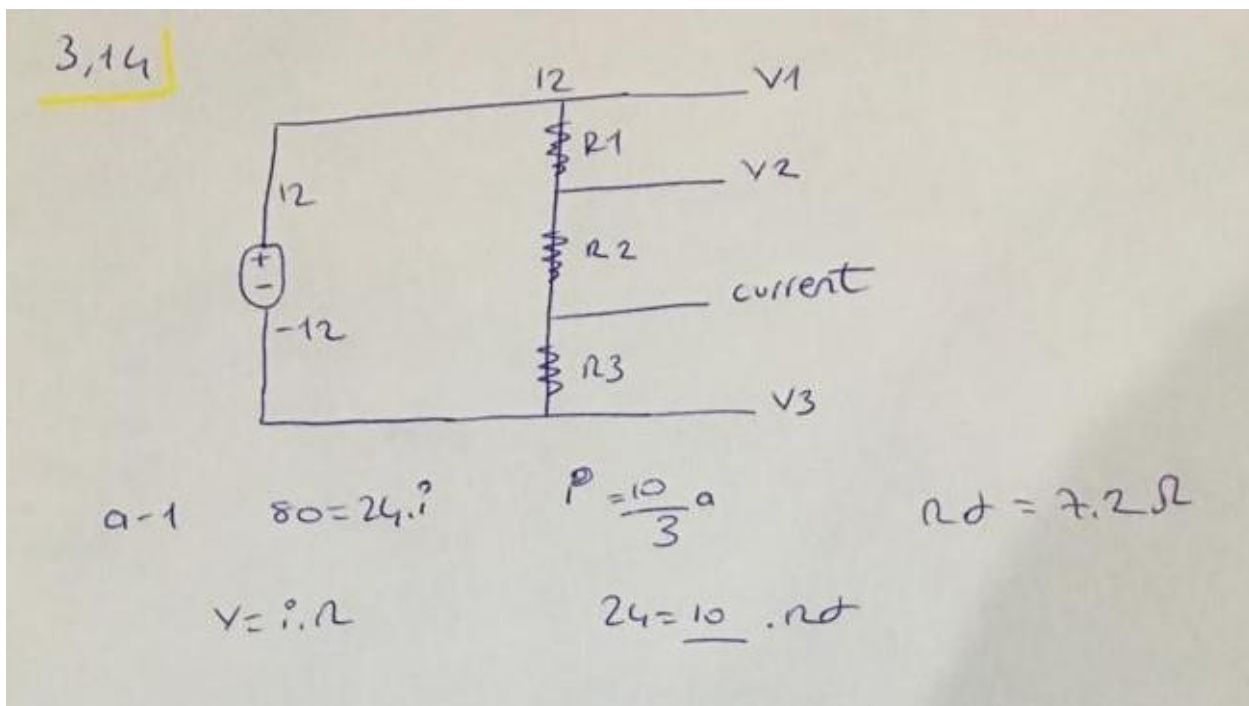 3,14
12 V1
R1
V2
12
R2
+
-
current
-12
R3
V3
a-1 80=24.i P=10/3 a Rt=7.2Ω
V=i.R 24=10.Rt